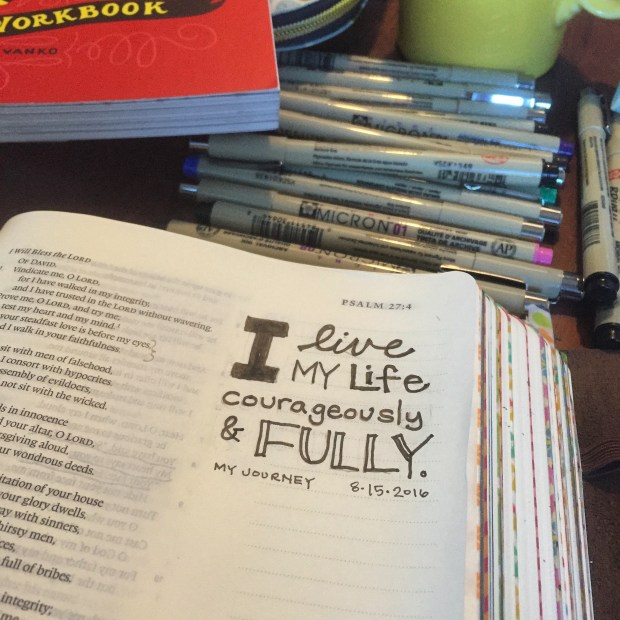 WORKBOOK
VANKO
MICRON
MICRON 01
QUALITÉ D'ARCHIVAGE
TINTA DE ARCHIVO
(AP)
PSALM 27:4
I live
MY Life
courageously
& FULLY.
MY JOURNEY 8·15·2016
I Will Bless the LORD
OF DAVID.
Vindicate me, O LORD,
for I have walked in my integrity,
and I have trusted in the LORD without wavering.
rove me, O LORD, and try me;
test my heart and my mind.
your steadfast love is before my eyes,
d I walk in your faithfulness.
sit with men of falsehood,
I consort with hypocrites.
ssembly of evildoers,
not sit with the wicked.
ds in innocence
d your altar, O LORD,
sgiving aloud,
ur wondrous deeds.
itation of your house
your glory dwells.
ay with sinners,
hirsty men,
ces,
full of bribes.
integrity;